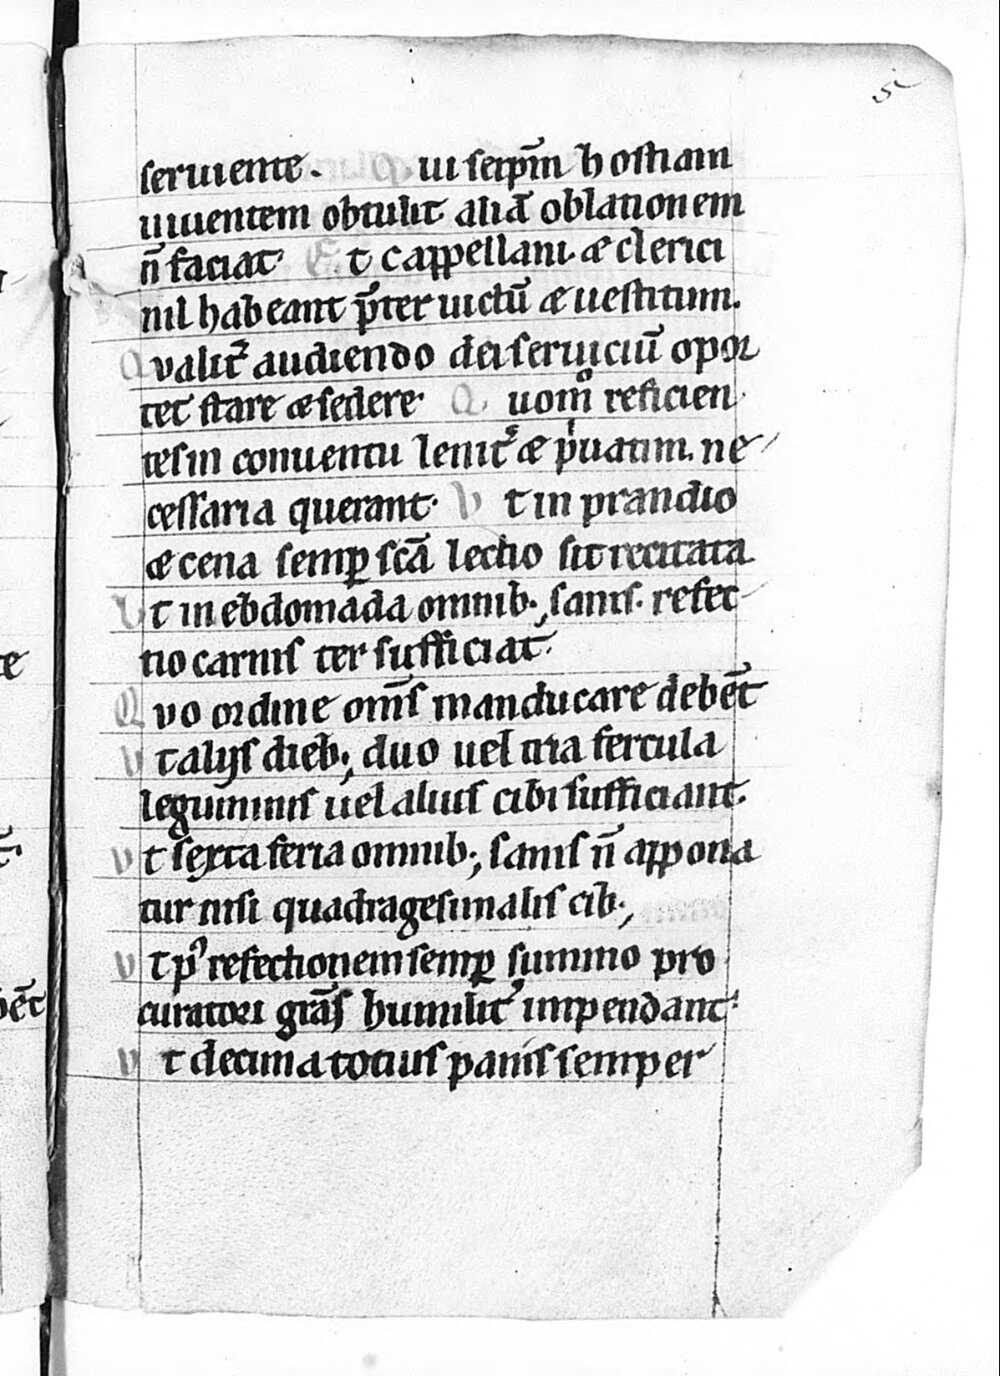 5
seruiente. Qui seip̄m hostiam
uiuentem obtulit aliā oblationem
n̄ faciat Et cappellani. æ clerici
nil habeant p̄ter uictū æ uestitum.
Qvalit̉ audiendo dei seruiciū opor
tet stare æ sedere. Quom̊ reficien
tes in conuentu lenit̉ æ pͥuatim. ne
cessaria querant. Vt in prandio
æ cena semꝑ sc̄a lectio sit recitata
Vt in ebdomada omnib; sanis. refec
tio carnis ter sufficiat.
Qvo ordine om̄s manducare debēt
Vt alijs dieb; duo uel tria fercula
leguminis uel alius cibi sufficiant.
Vt sexta feria omnib; sanis n̄ appona
tur nisi quadragesimalis cib;
Vt pꝰ refectionem semꝑ summo pro
curatori grās humilit̉ impendant.
Vt decima totius panis semper